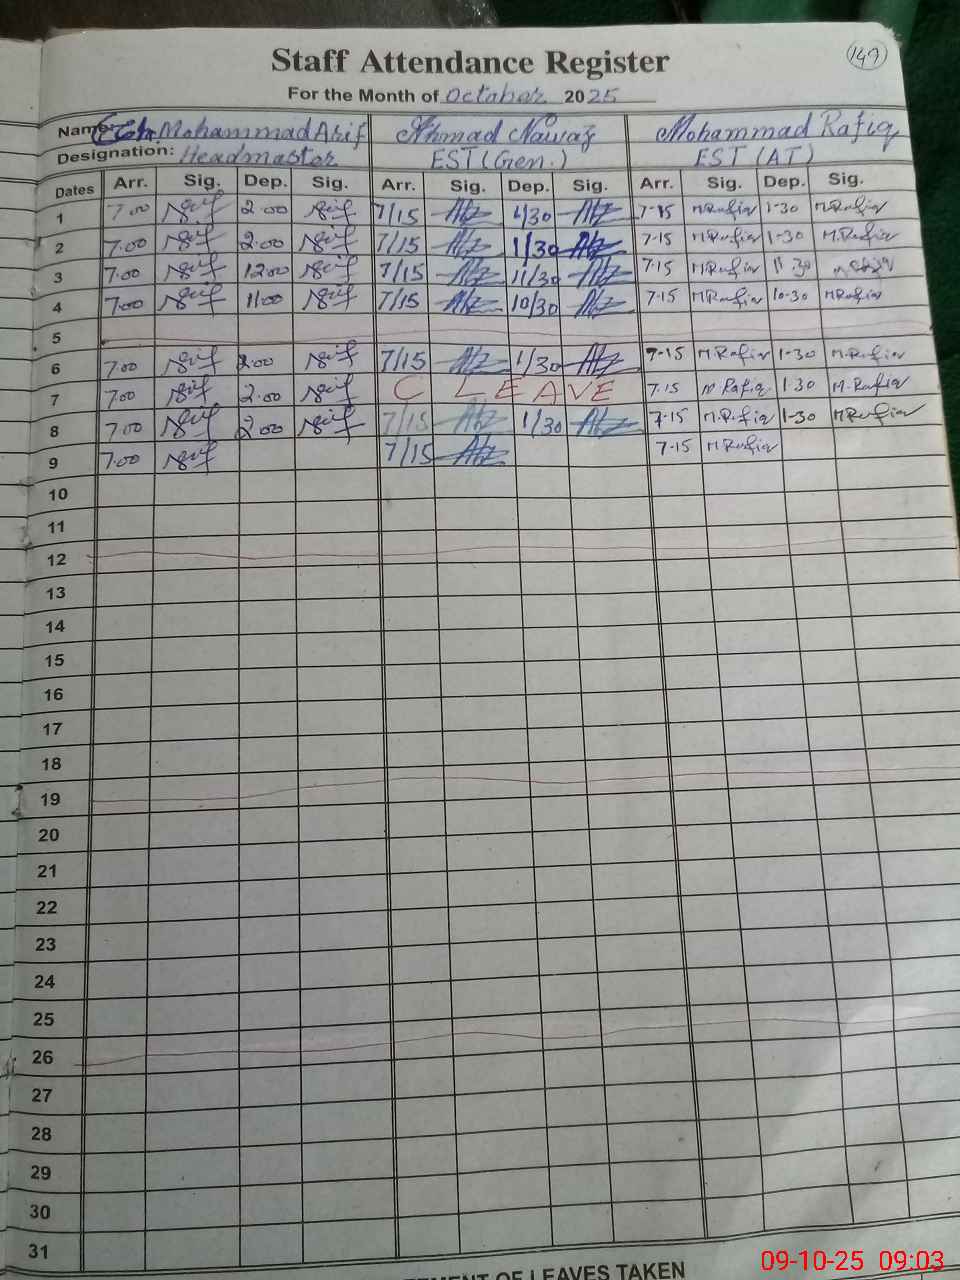 147
Staff Attendance Register
For the Month of October 2025
Name: Mohammad Arif Ahmad Nawaz Mohammad Rafiq
Designation: Headmaster EST (Gen.) EST (AT)
Dates Arr. Sig. Dep. Sig. Arr. Sig. Dep. Sig. Arr. Sig. Dep. Sig.
1 7.00 2.00 7/15 1/30 7-15 M Rafiq 1-30 M Rafiq
2 7.00 2.00 7/15 1/30 7-15 M Rafiq 1-30 M.Rafiq
3 7.00 12.00 7/15 11/30 7.15 M Rafiq 11-30
4 7.00 11.00 7/15 10/30 7-15 M Rafiq 10-30 M Rafiq
5
6 7.00 2.00 7/15 1/30 7-15 M.Rafiq 1-30 M.Rafiq
7 7.00 2.00 C LEAVE 7.15 M Rafiq 1.30 M.Rafiq
8 7.00 2.00 7/15 1/30 7-15 M.Rafiq 1-30 M Rafiq
9 7.00 7/15 7-15 M Rafiq
10
11
12
13
14
15
16
17
18
19
20
21
22
23
24
25
26
27
28
29
30
31
OF LEAVES TAKEN
09-10-25 09:03